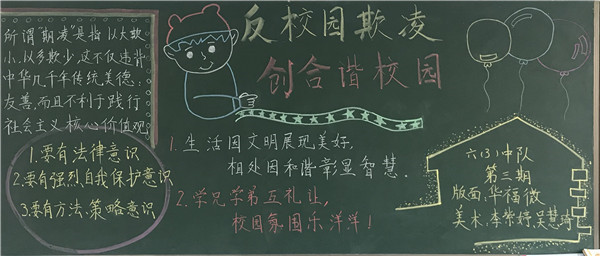 反校园欺凌
创合谐校园
所谓“期凌”是指以大欺
小、以多欺少,这不仅违背
中华几千年传统美德:
友善,而且不利于践行
社会主义核心价值观
1.要有法律意识
2.要有强烈自我保护意识
3.要有方法、策略意识
1.生活因文明展现美好,
相处因和谐彰显智慧.
2.学兄学弟互礼让,
校园氛围乐洋洋!
六(3)中队
第三期
版面:华福微
美术:李紫婷、吴慧琦